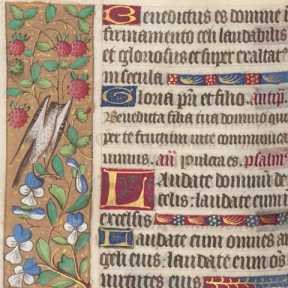 Benedictus es domine i
firmamento celi laudabilis
et gloriosus et super exaltat
in secula
Gloria pr̄i et filio. antip̄.
Benedicta filia tua domino quia
per te fructum vite communica
uimus. añ pulcra es. psalm
Laudate dominū de
celis: laudate eum
excelsis
Laudate eum omnes an
geli eius: laudate eum om
uirtutes eius